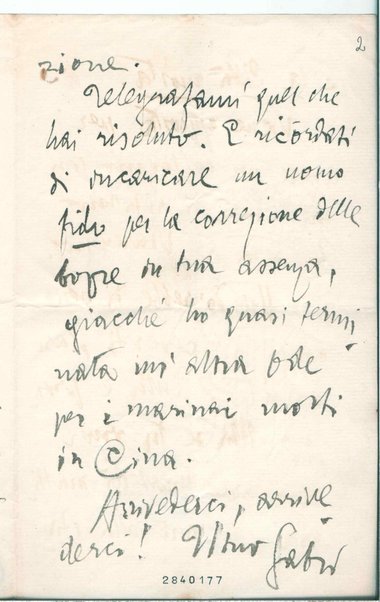 2
zione.
Telegrafami quel che
hai risoluto. E ricordati
di incaricare un uomo
fido per la correzione delle
bozze in tua assenza,
giacché ho quasi termi
nata un' altra Ode
per i marinai morti
in Cina.
Arrivederci, arrive
derci! Il tuo Gabri
2840177